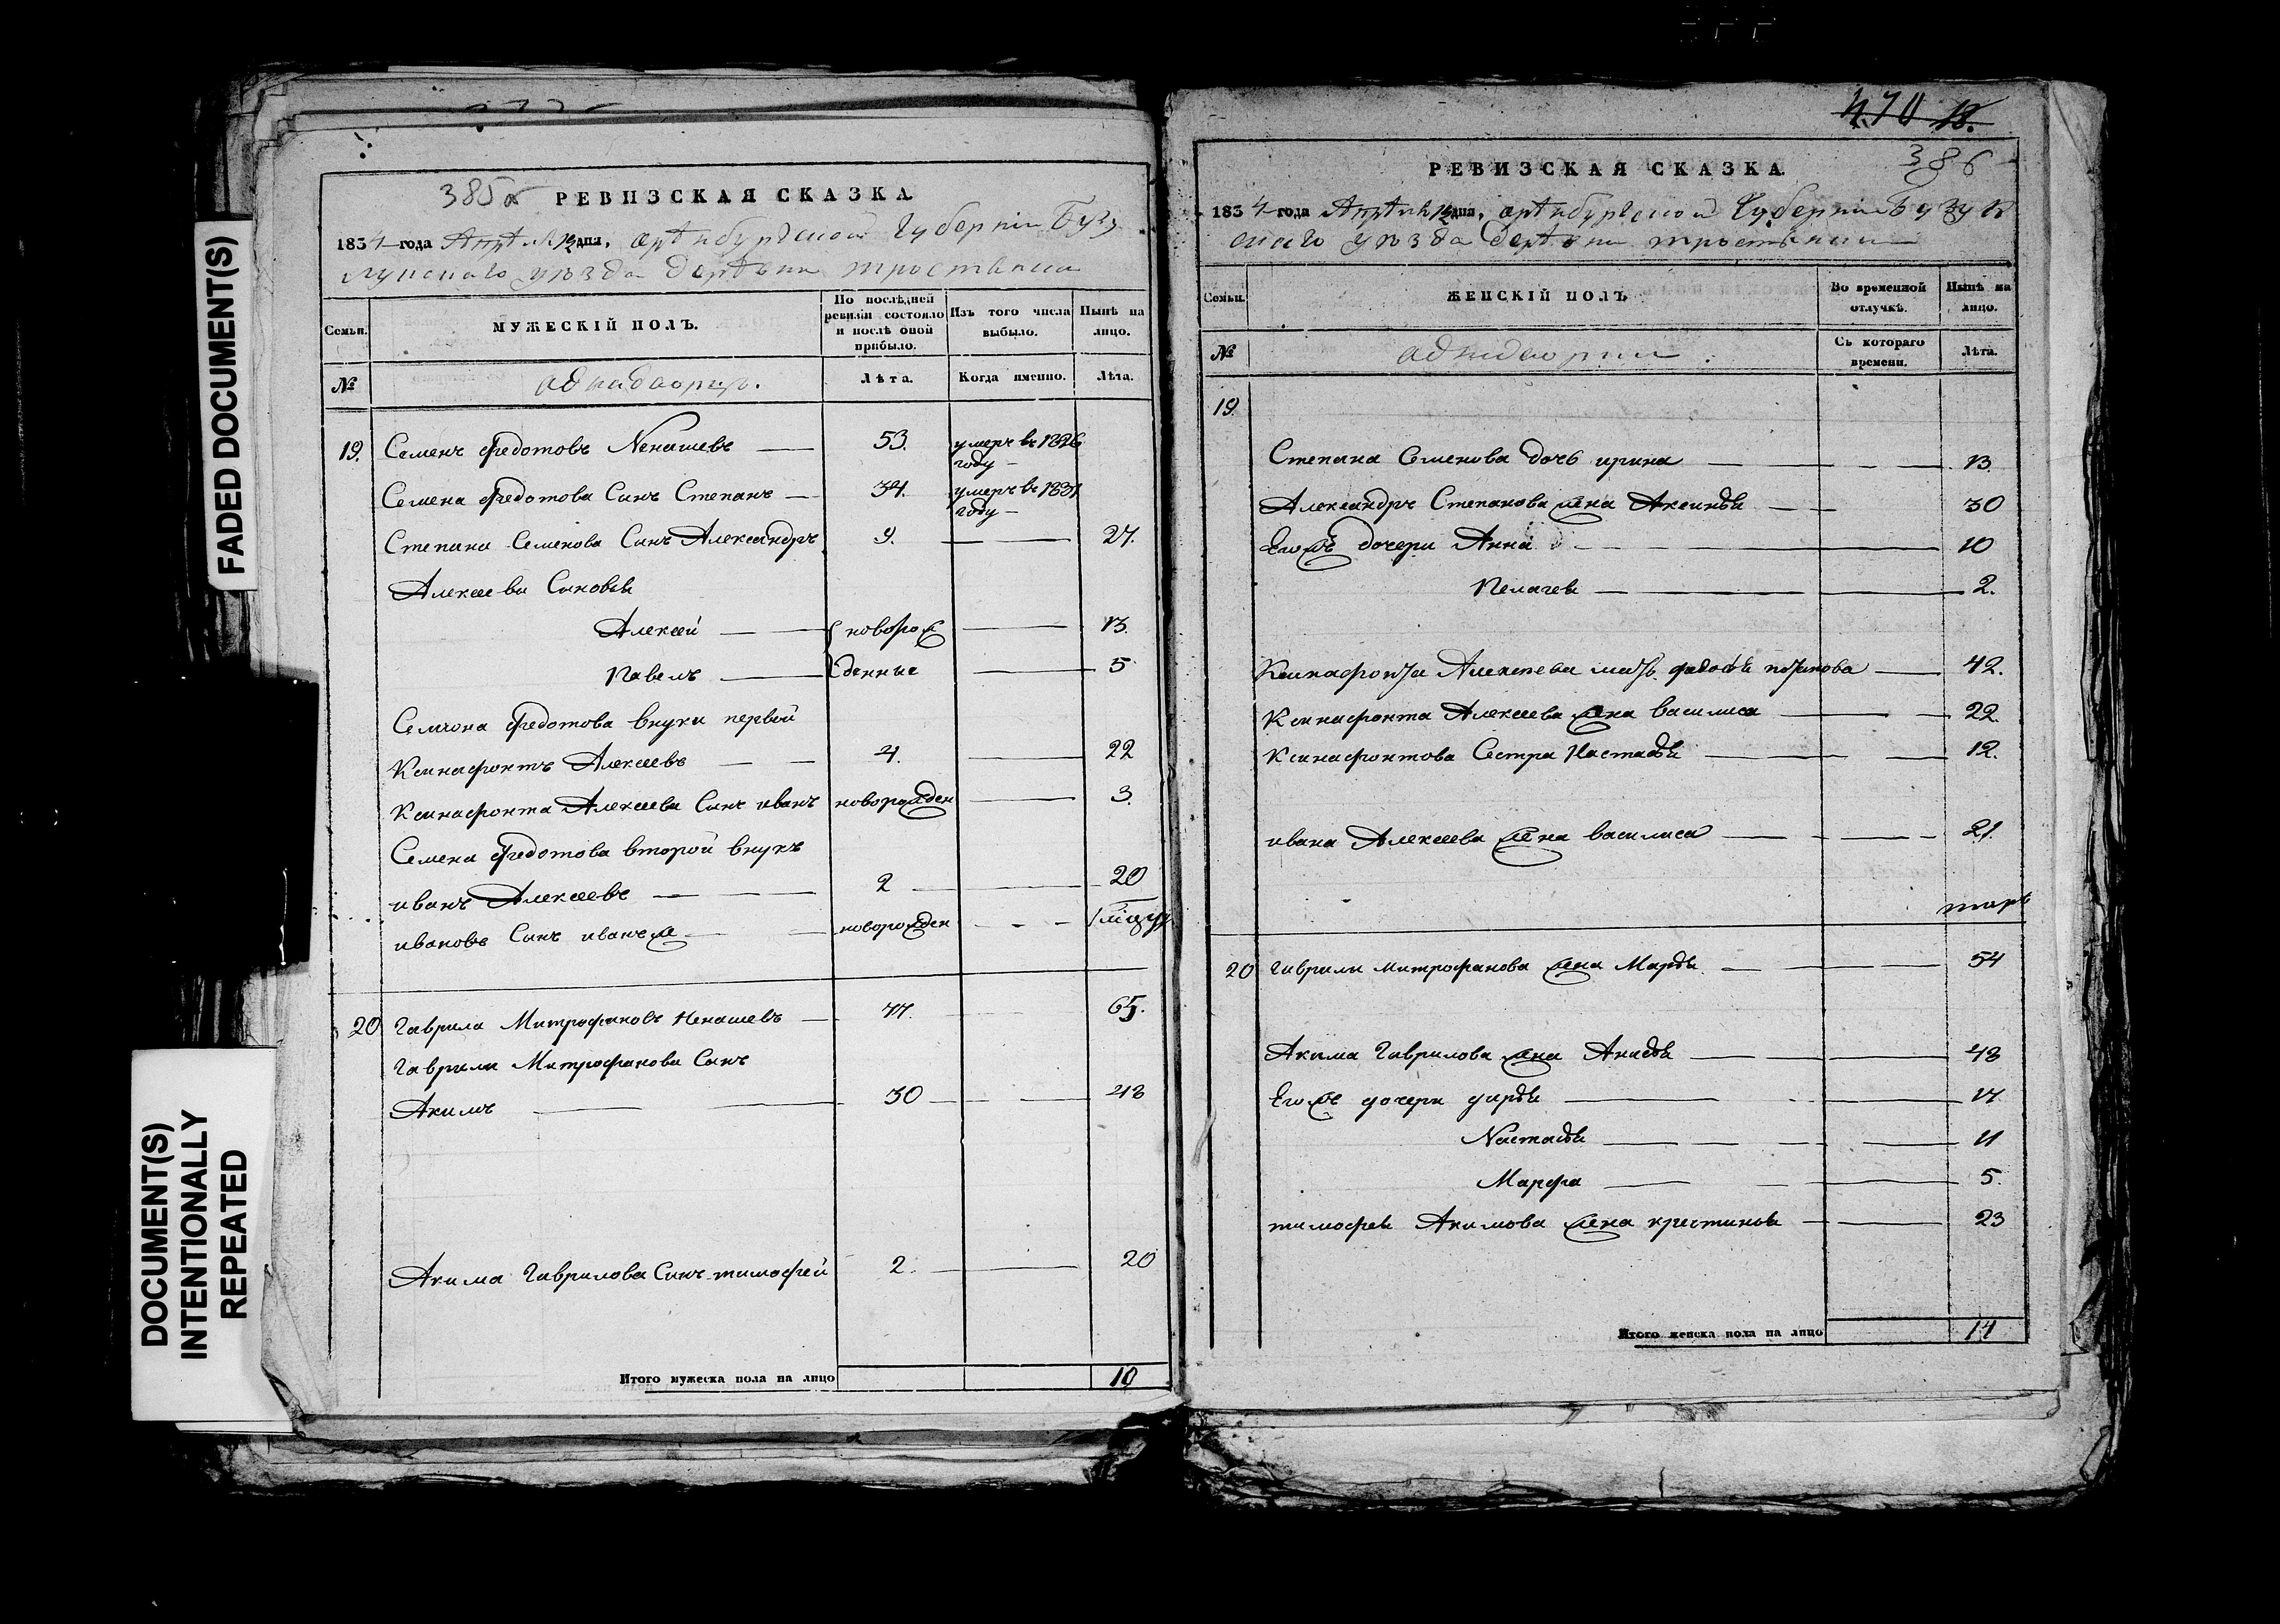 FADED DOCUMENT(S)
DOCUMENT(S)
INTENTIONALLY
REPEATED
385
РЕВИЗСКАЯ СКАЗКА
1834 года Апреля 13 дня, оренбургской Губернии Бузу
лукского уезда деревни тростянки
Семьи. МУЖЕСКІЙ ПОЛЪ. По послѣдней ревизіи состояло и послѣ оной прибыло. Изъ того числа выбыло. Нынѣ на лицо.
№ аднадворцы. Лѣта. Когда именно. Лѣта.
19. Семенъ Федотовъ Ненашевъ 53. умеръ въ 1826 году
Семена Федотова Сынъ Степанъ 34. умеръ въ 1831 году
Степана Семенова Сынъ Александръ 9. 27.
Алексеева Сыновьи
Алексей новорож 13.
Павелъ денные 5
Семиона Федотова внуки первой
Ксинафонтъ Алексеевъ 4. 22
Ксинафонта Алексеева Сынъ иванъ новорожден 3.
Семена Федотова второй внукъ
иванъ Алексеевъ 2 20
ивановъ Сынъ иванъ же новорожден
20 Гаврила Митрофановъ Ненашевъ 47. 65.
Гаврилы Митрофанова Сынъ
Акимъ 30 48
Акима Гаврилова Сынъ тимофей 2. 20
Итого мужеска пола на лицо 10
470 18.
386
РЕВИЗСКАЯ СКАЗКА
1834 года Апреля 13 дня, оренбургской Губернии Бузулу
скаго уезда деревни тростянки
Семьи. ЖЕНСКІЙ ПОЛЪ Во временной отлучкѣ. Нынѣ на лицо.
№ аднадворки. Съ котораго времени. Лѣта.
19.
Степана Семенова дочь ирина 13.
Александръ Степанова жена Аксинья 30
Егожъ дочери Анна 10
Пелагея 2.
Ксинафонта Алексеева мать 42.
Ксинафонта Алексеева жена василиса 22.
Ксинафонтова Сестра Настасья 12.
ивана Алексеева жена василиса 21.
20 Гаврилы митрофанова жена Марья 54
Акима Гаврилова жена Анисья 48
Егожъ дочери дарья 17
Настасья 11
Марфа 5.
тимофея Акимова жена крестинья 23
Итого женска пола на лицо 14